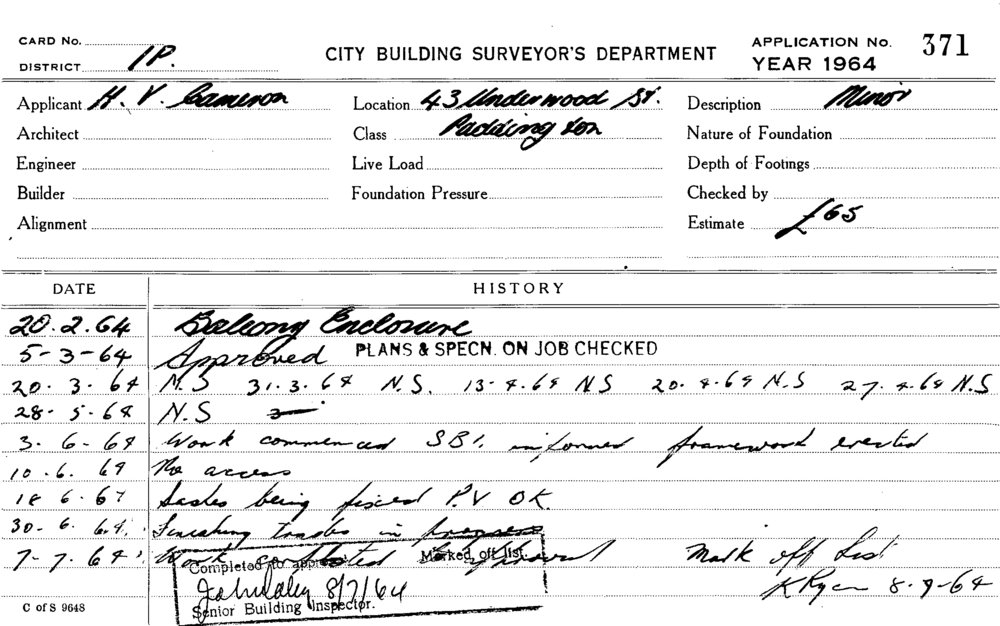 CARD No.
DISTRICT 1P.
CITY BUILDING SURVEYOR'S DEPARTMENT
APPLICATION No. 371
YEAR 1964
Applicant H. V. Cameron Location 43 Underwood St. Description Minor
Architect Class Paddington Nature of Foundation
Engineer Live Load Depth of Footings
Builder Foundation Pressure Checked by
Alignment Estimate £65
DATE HISTORY
20.2.64 Balcony Enclosure
5-3-64 Approved PLANS & SPECN. ON JOB CHECKED
20.3.64 N.S 31.3.64 N.S. 13-4.64 NS 20.4.64 N.S 27.4.64 N.S
28.5.64 N.S
3.6-64 Work commenced SBI. informed framework erected
10.6.64 No access
18 6.64 Sashes being fixed P.V OK.
30-6.64. Finishing trades in progress
7-7.64. Work completed Mark off List
K Ryan 8-9-64
Completed to approval Marked off list.
8/7/64
Senior Building Inspector.
C of S 9648